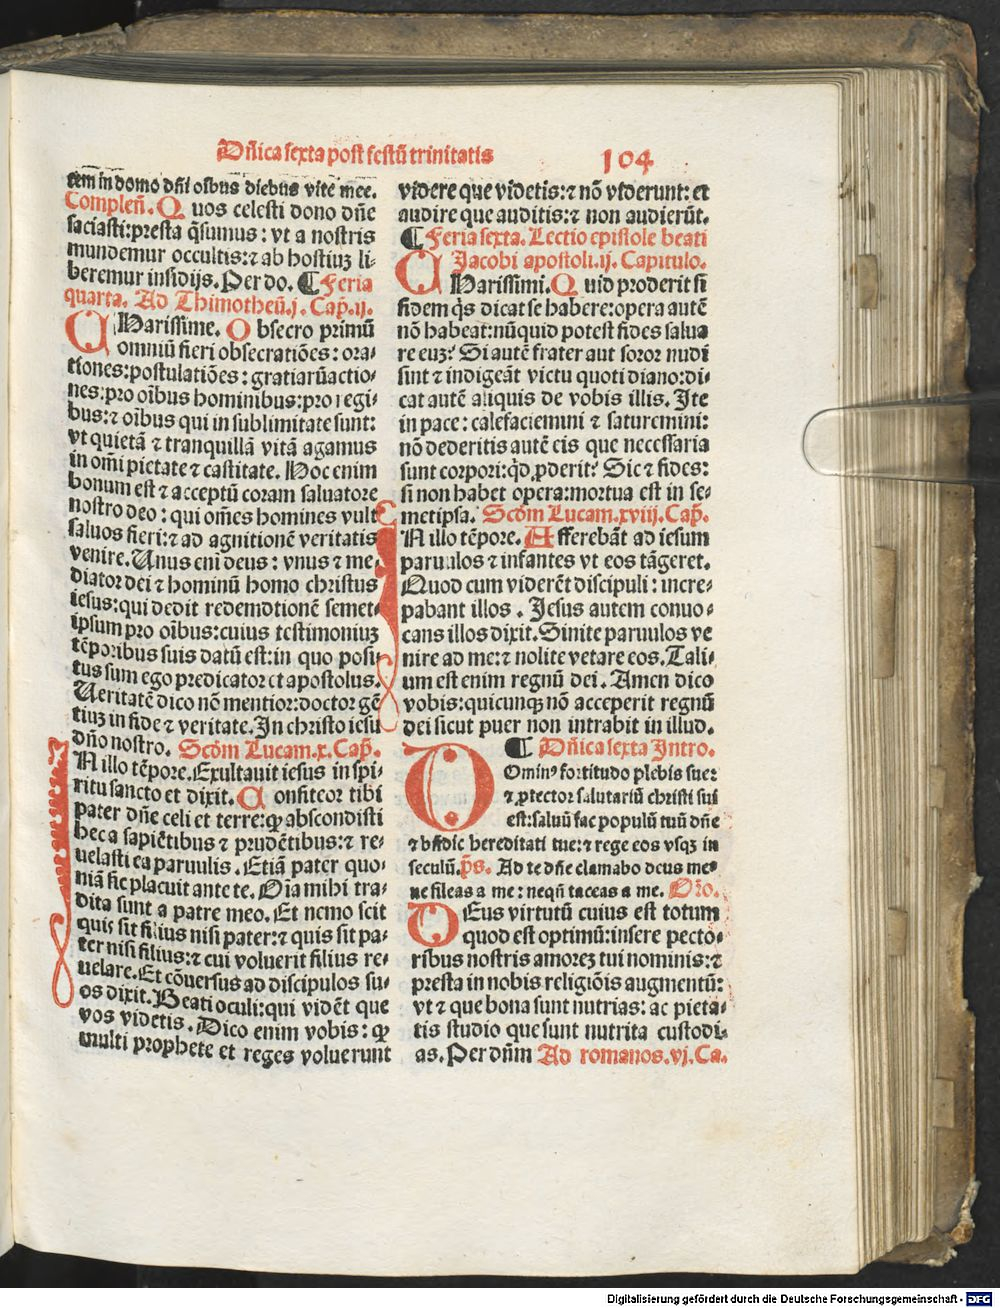 Dñica sexta post festũ trinitatis 104
tem in domo dñi oĩbus diebus vite mee.
Compleñ. Quos celesti dono dñe
saciasti:presta q̃sumus: vt a nostris
mundemur occultis:⁊ ab hostiuȝ li⸗
beremur insidijs. Per do. ¶ Feria
quarta. Ad Thimotheũ.j. Cap̃.ij.
CHarissime. Obsecro primũ
omniũ fieri obsecratiões: ora⸗
tiones:postulatiões: gratiarũactio⸗
nes:pro oĩbus hominibus:pro regi⸗
bus:⁊ oĩbus qui in sublimitate sunt:
vt quietã ⁊ tranquillã vitã agamus
in om̃i pietate ⁊ castitate. Hoc enim
bonum est ⁊ acceptũ coram saluatore
nostro deo: qui om̃es homines vult
saluos fieri:⁊ ad agnitionẽ veritatis
venire. Unus eni deus: vnus ⁊ me⸗
diator dei ⁊ hominũ homo christus
iesus:qui dedit redemdtionẽ semet⸗
ipsum pro oĩbus:cuius testimoniuȝ
tẽporibus suis datũ est:in quo posi⸗
tus sum ego predicator et apostolus.
Veritatẽ dico nõ mentior:doctor gẽ
tiuȝ in fide ⁊ veritate. In christo iesu
dño nostro. Scdm Lucam.x. Cap̃.
IN illo tẽpore. Exultauit iesus in spi⸗
ritu sancto et dixit. Confiteor tibi
pater dñe celi et terre:ꝙ abscondisti
hec a sapiẽtibus ⁊ prudẽtibus:⁊ re⸗
uelasti ea paruulis. Etiã pater quo⸗
niã sic placuit ante te. Oĩa mihi tra⸗
dita sunt a patre meo. Et nemo scit
quis sit filius nisi pater:⁊ quis sit pa⸗
ter nisi filius:⁊ cui voluerit filius re⸗
uelare. Et cõuersus ad discipulos su⸗
os dixit. Beati oculi:qui vidẽt que
vos videtis. Dico enim vobis: ꝙ
multi prophete et reges voluerunt
videre que videtis:⁊ nõ viderunt: et
audire que auditis:⁊ non audierũt.
¶ Feria sexta. Lectio epistole beati
Jacobi apostoli.ij. Capitulo.
CHarissimi. Quid proderit si
fidem q̃s dicat se habere:opera autẽ
nõ habeat:nũquid potest fides salua
re euȝ? Si autẽ frater aut soror nudi
sint ⁊ indigeãt victu quotidiano:di⸗
cat autẽ aliquis de vobis illis. Ite
in pace: calefaciemini ⁊ saturemini:
nõ dederitis autẽ eis que necessaria
sunt corpori:qd̃ ꝓderit? Sic ⁊ fides:
si non habet opera:mortua est in se⸗
metipsa. Scdm Lucam.xviij. Cap̃.
IN illo tẽpore. Afferebãt ad iesum
paruulos ⁊ infantes vt eos tãgeret.
Quod cum viderẽt discipuli: incre⸗
pabant illos. Jesus autem conuo⸗
cans illos dixit. Sinite paruulos ve
nire ad me:⁊ nolite vetare eos. Tali⸗
um est enim regnũ dei. Amen dico
vobis:quicunqȝ nõ acceperit regnũ
dei sicut puer non intrabit in illud.
¶ Dñica sexta Intro.
DOminꝰ fortitudo plebis sue:
⁊ ꝓtector salutariũ christi sui
est:saluũ fac populũ tuũ dñe
⁊ bñdic hereditati tue:⁊ rege eos vsqȝ in
seculũ. p̃s. Ad te dñe clamabo deus me⸗
ne sileas a me: nequñ taceas a me. Oro.
DEus virtutũ cuius est totum
quod est optimũ:insere pecto⸗
ribus nostris amoreȝ tui nominis:⁊
presta in nobis religiõis augmentũ:
vt ⁊ que bona sunt nutrias: ac pieta⸗
tis studio que sunt nutrita custodi⸗
as. Per dñm Ad romanos.vj. Ca.
Digitalisierung gefördert durch die Deutsche Forschungsgemeinschaft - DFG